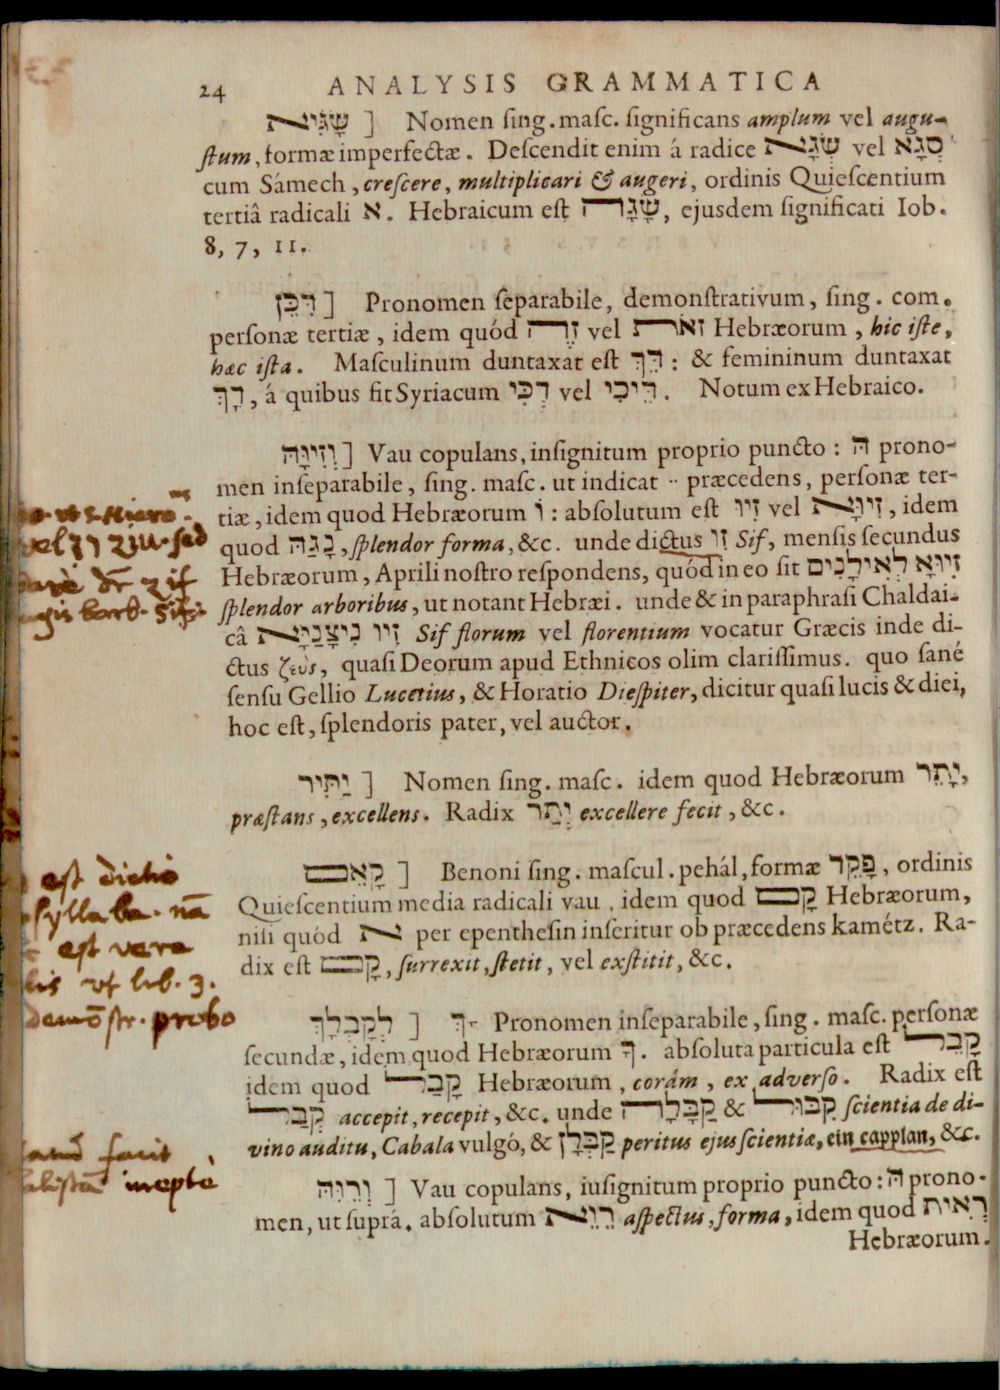 24 ANALYSIS GRAMMATICA
שָׂגִּיא ] Nomen ſing. maſc. ſignificans amplum vel augu-
ſtum, formæ imperfectæ. Deſcendit enim á radice שְׂגָא vel סְגָא
cum Sámech, creſcere, multiplicari & augeri, ordinis Quieſcentium
tertiâ radicali א. Hebraicum eſt שָׂגָה, ejusdem ſignificati Iob.
8, 7, 11.
דִּכֵּן ] Pronomen ſeparabile, demonſtrativum, ſing. com.
perſonæ tertiæ, idem quód זֶה vel זֹאת Hebræorum, hic iſte,
hæc iſta. Maſculinum duntaxat eſt דֵּךְ : & femininum duntaxat
דָּךְ, á quibus fit Syriacum דְּכִּי vel דֵּיכִי. Notum ex Hebraico.
וְזִיוֵּהּ ] Vau copulans, inſignitum proprio puncto : הּ prono-
men inſeparabile, ſing. maſc. ut indicat ·· præcedens, perſonæ ter-
tiæ, idem quod Hebræorum וֹ : abſolutum eſt זִיו vel זִיוָא, idem
quod נָגַהּ, ſplendor forma, &c. unde dictus זִו Sif, menſis ſecundus
Hebræorum, Aprili noſtro reſpondens, quód in eo ſit זִיוָא לְאִילָנִים
ſplendor arboribus, ut notant Hebræi. unde & in paraphraſi Chaldai-
câ זִיו נִיצָנַיָּא Sif florum vel florentium vocatur Græcis inde di-
ctus ζεὺς, quaſi Deorum apud Ethnicos olim clariſſimus. quo ſané
ſenſu Gellio Lucetius, & Horatio Dieſpiter, dicitur quaſi lucis & diei,
hoc eſt, ſplendoris pater, vel auctor.
יַתִּיר ] Nomen ſing. maſc. idem quod Hebræorum יָתֵר,
præſtans, excellens. Radix יְתַר excellere fecit, &c.
קָאֵם ] Benoni ſing. maſcul. pehál, formæ פָּקֵד, ordinis
Quieſcentium media radicali vau, idem quod קָם Hebræorum,
niſi quód א per epentheſin inſeritur ob præcedens kamétz. Ra-
dix eſt קָם, ſurrexit, ſtetit, vel exſtitit, &c.
לְקָבְלָךְ ] ךְ- Pronomen inſeparabile, ſing. maſc. perſonæ
ſecundæ, idem quod Hebræorum ךָ. abſoluta particula eſt קָבֵל
idem quod קָבַל Hebræorum, corám, ex adverſo. Radix eſt
קִבֵּל accepit, recepit, &c. unde קַבָּלָה & קִבּוּל ſcientia de di-
vino auditu, Cabala vulgó, & קַבְּלָן peritus ejus ſcientiæ, ein capplan, &c.
וְרֵוֵהּ ] Vau copulans, iuſignitum proprio puncto : הּ prono-
men, ut ſuprá. abſolutum רֵוָא aſpectus, forma, idem quod רָאִית
Hebræorum.
vel ziu. ſed
eſt dictio
ſyllaba. nā
eſt vera
ut lib. 3.
demōſtr. probo
facit
inepté